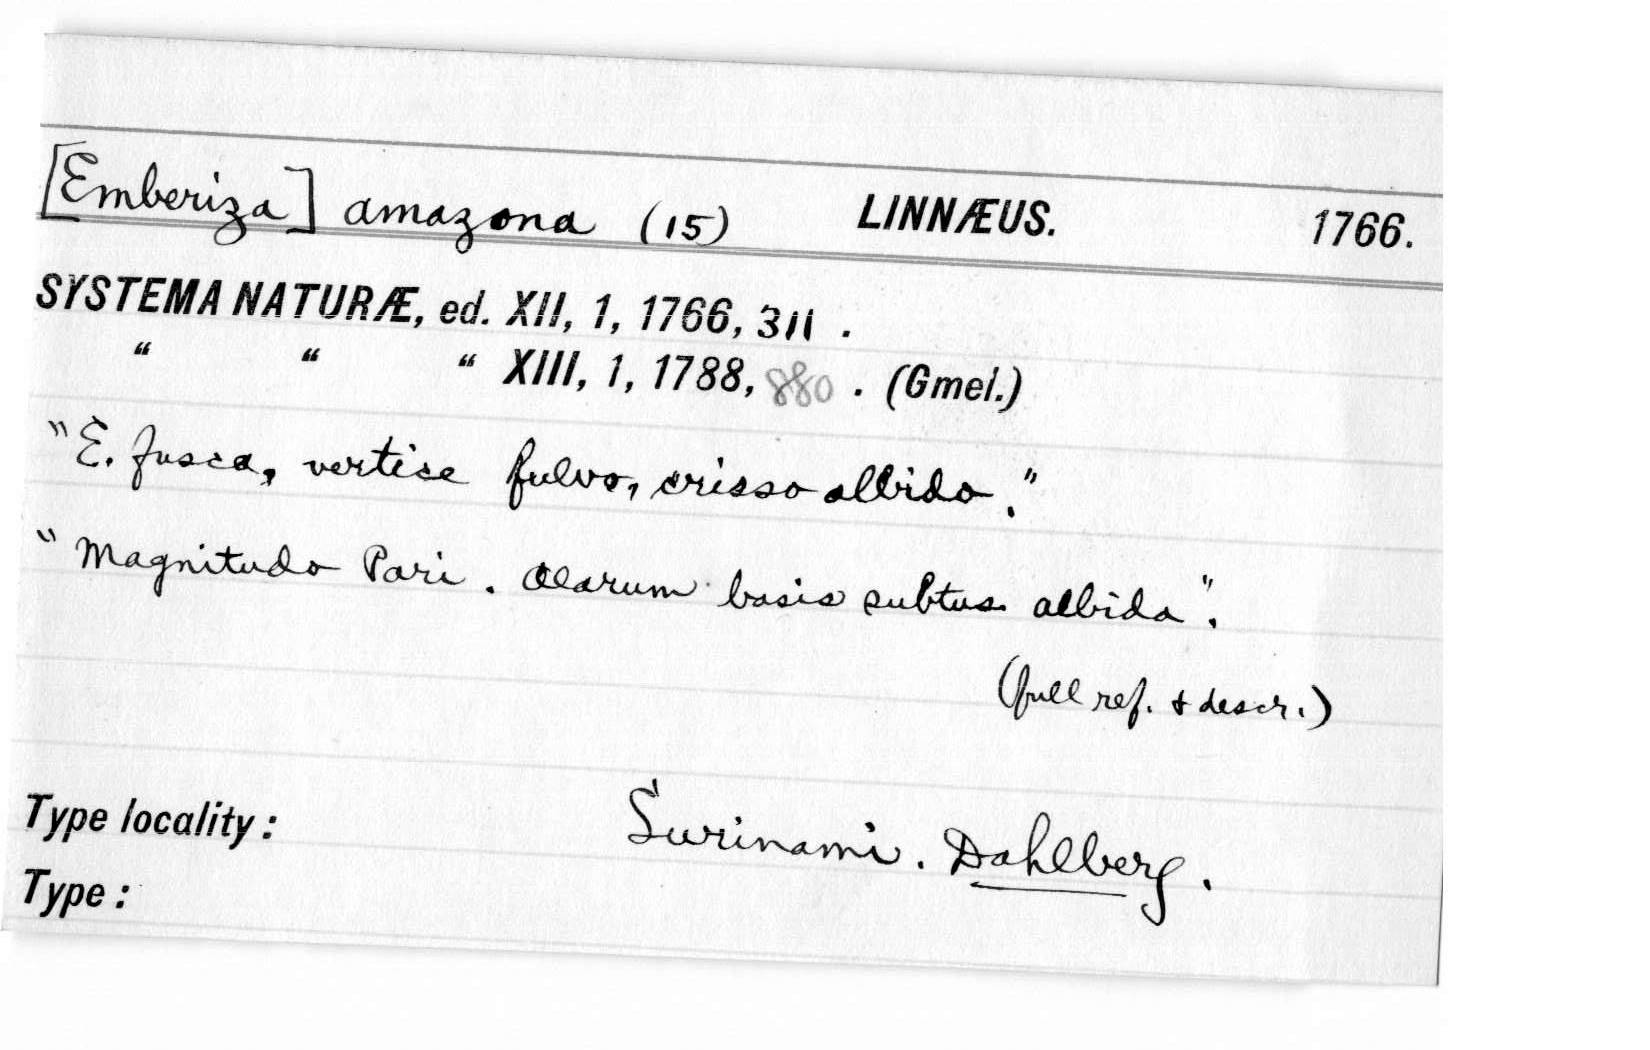 [Emberiza] amazona (15) LINNÆUS. 1766.
SYSTEMA NATURÆ, ed. XII, 1, 1766, 311 .
“ “ “ XIII, 1, 1788, 880 . (Gmel.)
"E. fusca, vertice fulvo, crisso albido."
"Magnitudo Pari. Alarum basis subtus albida".
(full ref. & descr.)
Type locality: Surinami. Dahlberg.
Type: